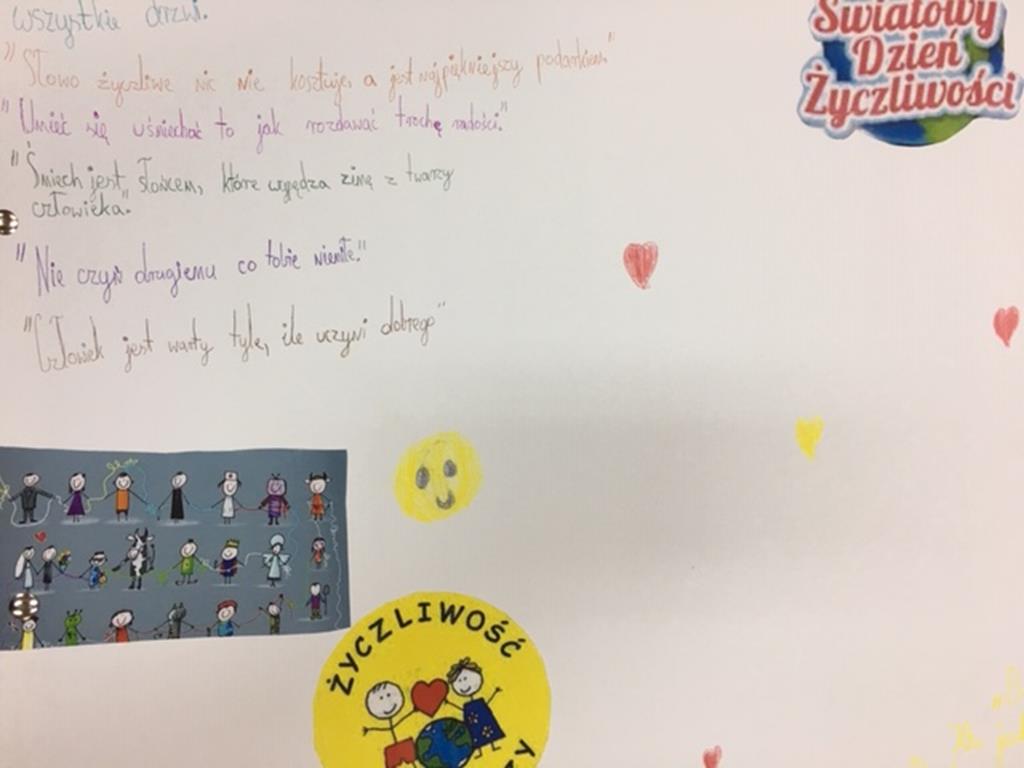 wszystkie drzwi.
"Słowo życzliwe nic nie kosztuje, a jest najpiękniejszy podarkiem."
"Umieć się uśmiechać to jak rozdawać trochę radości."
"Śmiech jest słońcem, które wypędza zimę z twarzy
człowieka."
"Nie czyń drugiemu co tobie niemiłe."
"Człowiek jest warty tyle, ile uczyni dobrego"
Światowy
Dzień
Życzliwości
ŻYCZLIWOŚĆ